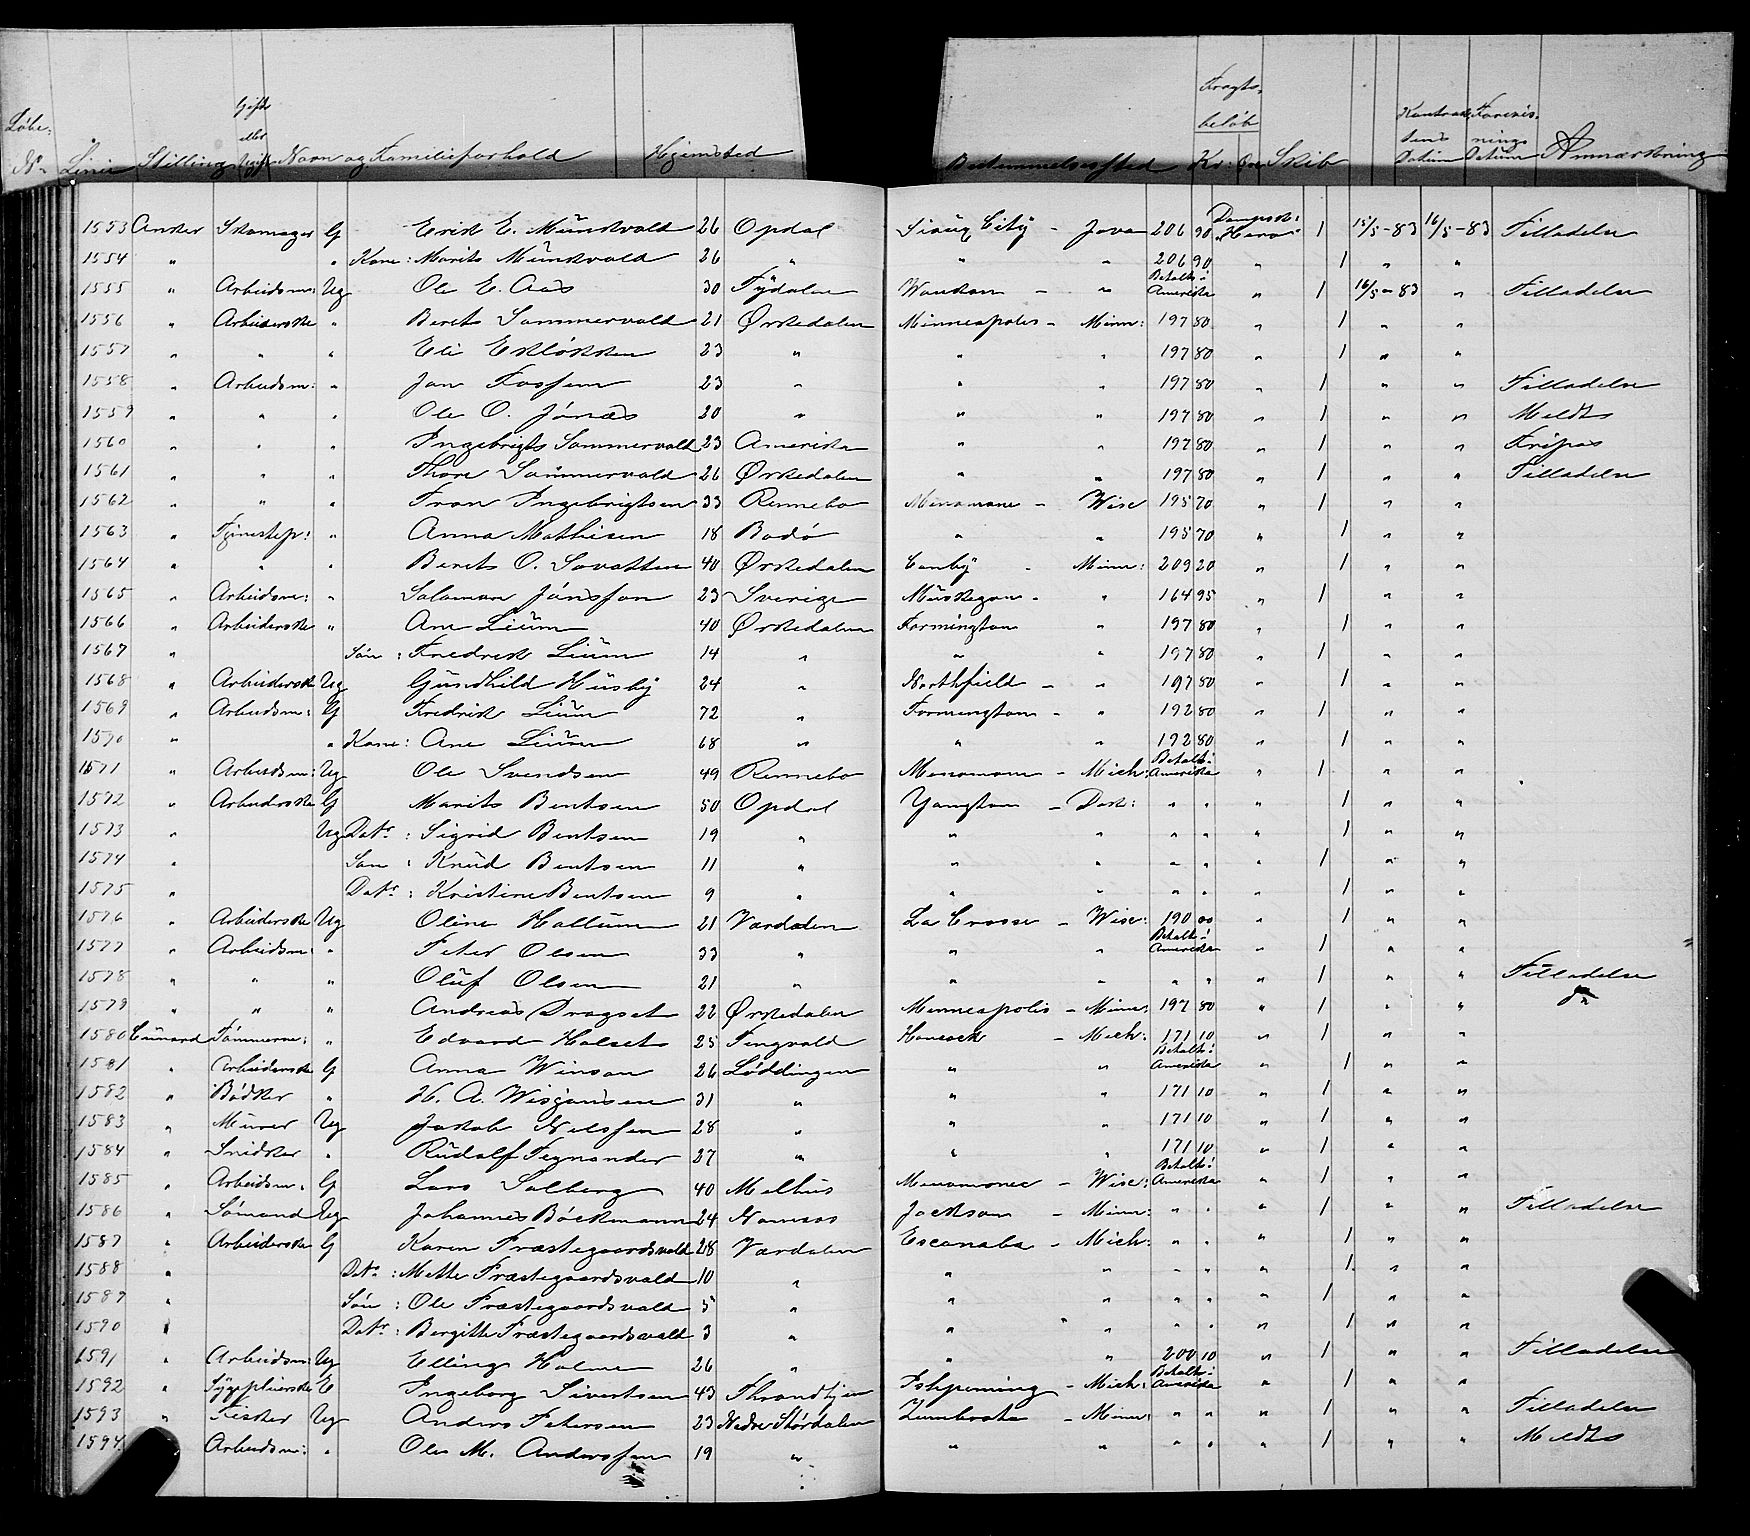 Løbe- Gifte Fragts- Kontrak- Forevis-
eller beløb tens nings
No Linie Stilling Ugift Navn og Familieforhold Hjemsted Bestemmelsessted Kr: Øre Skib Datum Datum Anmærkning
1553 Anker Skomager G Erik E. Münkvold 26 Opdal Sioux City - Iova 206 90 Dampsk: "Hero" 1 15/5-83 16/5-83 Tilladelse
1554 " " Kone: Marits Münkvold 26 " " " 206 90 " 1 " "
1555 " Arbeidsm: Ug Ole E. Aas 30 Tydalen Waukon - " Betalt i Amerika " 1 16/5-83 " Tilladelse
1556 " Arbeiderske " Berets Sammervold 21 Ørkedalen Minneapolis - Minn: 197 80 " 1 " "
1557 " " " Eli Ekløkken 23 " " " 197 80 " 1 " "
1558 " Arbeidsm: " Jon Fossem 23 " " " 197 80 " 1 " " Tilladelse
1559 " " " Ole O. Jónæs 20 " " " 197 80 " 1 " " Meldts
1560 " " " Ingebrigts Sammervold 23 Amerika " " 197 80 " 1 " " Fripas
1561 " " " Thore Sammervold 26 Ørkedalen " " 197 80 " 1 " " Tilladelse
1562 " " " Iron Ingebrigtsen 33 Rennebo Menomone - Wisc 195 70 " 1 " "
1563 " Tjenestep: " Anna Mathisen 18 Bodø " " 195 70 " 1 " "
1564 " " " Berets O. Sovatten 40 Ørkedalen Canby - Minn: 209 20 " 1 " "
1565 " Arbeidsm: " Salaman Jónsson 23 Sverige Müskegon - " 164 95 " 1 " "
1566 " Arbeiderske " Ane Liüm 40 Ørkedalen Farmington " 197 80 " 1 " "
1567 " Søn : Fredrik Liüm 14 " " " 197 80 " 1 " "
1568 " Arbeiderske Ug Gündhild Hüsby 24 " Northfield - " 197 80 " 1 " "
1569 " Arbeidsm: G Fredrik Liüm 72 " Farmington - " 192 80 " 1 " "
1570 " " Kone: Ane Liüm 68 " " " 192 80 " 1 " "
1571 " Arbeidsm: Ug Ole Svendsen 49 Rennebo Menomone - Mich: Betalt i Amerika " 1 " "
1572 " Arbeiderske G Marits Bentsen 50 Opdal Yangton - Dak: " " " 1 " "
1573 " Ug Datr : Sigrid Bentsen 19 " " " " " " 1 " "
1574 " Søn : Knüd Bentsen 11 " " " " " " 1 " "
1575 " Datr : Kristine Bentsen 9 " " " " " " 1 " "
1576 " Arbeiderske Ug Oline Hallüm 21 Værdalen La Crosse - Wisc: 190 00 " 1 " "
1577 " Arbeidsm: " Peter Olsen 33 " " " Betalt i Amerika " 1 " "
1578 " " " Olüf Olsen 21 " " " " " " 1 " " Tilladelse
1579 " " " Andreas Dragset 22 Ørkedalen Minneapolis - Minn: 197 80 " 1 " " do
1580 Cunard Tømmerm: " Edvard Halset 25 Tingvold Hancock - Mich: 171 10 " 1 " "
1581 " Arbeiderske G Anna Winson 26 Løddingen " " Betalt i Amerika " 1 " "
1582 " Bødker " H. A. Wisjansen 31 " " " 171 10 " 1 " "
1583 " Mürer Ug Jacob Nilssen 28 " " " 171 10 " 1 " "
1584 " Snidker " Rüdolf Tegnander 27 " " " 171 10 " 1 " "
1585 " Arbeidsm. G Lars Solberg 40 Melhüs Menomonee - Wisc: Betalt i Amerika " 1 " "
1586 " Sømand Ug Johannes Böckmann 24 Namsos Jackson - Minn: " " " 1 " " Tilladelse
1587 " Arbeiderske G Karen Præstegaardsvald 28 Værdalen Escanaba - Mich: " " " 1 " "
1588 " Datr : Mette Præstegaardsvald 10 " " " " " " 1 " "
1589 " Søn : Ole Præstegaardsvald 5 " " " " " " 1 " "
1590 " Datr : Bergitte Præstegaardsvald 3 " " " " " " 1 " "
1591 " Arbeidsm: Ug Elling Holmen 26 " " " 200 10 " 1 " " Tilladelse
1592 " Sypleierske E Ingeborg Sivertsen 43 Throndhjem Ishpeming - Mich: Betalt i Amerika " 1 " "
1593 " Fisker Ug Anders Petersen 23 Nedre Størdalen Zumbrota - Minn: " " " 1 " " Tilladelse
1594 Arbeidsm: " Ole M. Anderssen 19 " " " " " " 1 " " Meldts